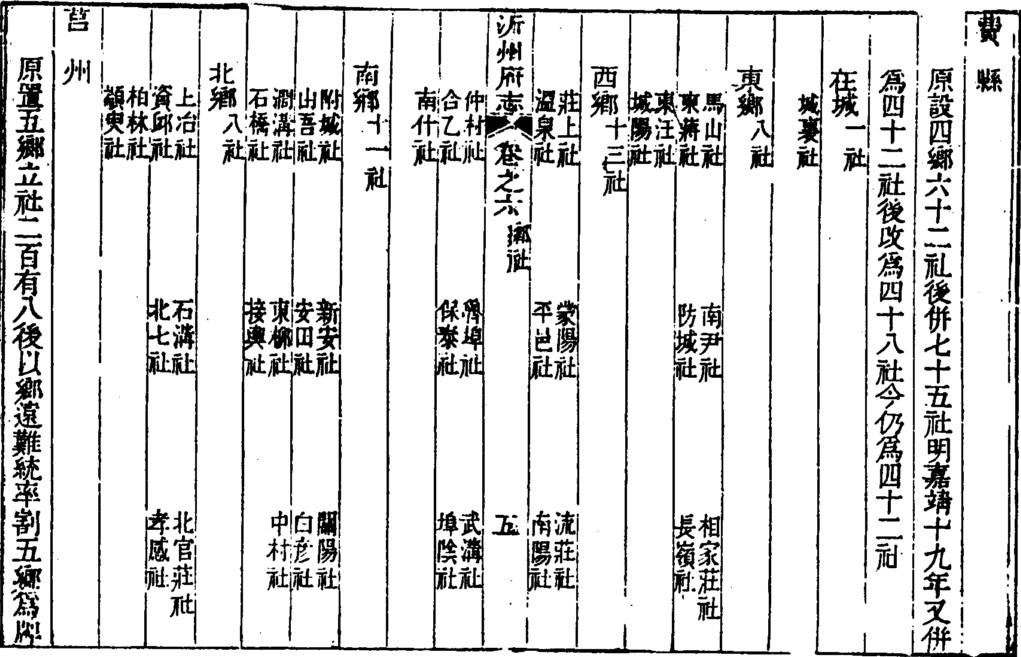 費縣
原設四鄉六十二社後併七十五社明嘉靖十九年又併
為四十二社後改為四十八社今仍為四十二社
在城一社
城裏社
東鄉八社
馬山社 南尹社 相家莊社
東蔣社 防城社 長嶺社
東汪社
城陽社
西鄉十三社
莊上社 蒙陽社 流莊社
溫泉社 平邑社 南陽社
沂州府志 卷之六 鄉社 五
仲村社 埠社 武溝社
合乙社 保泰社 埠陰社
南什社
南鄉十一社
附城社 新安社 關陽社
山吾社 安田社 白彥社
澗溝社 東柳社 中村社
石橋社 接輿社
北鄉八社
上冶社 石溝社 北官莊社
資邱社 北七社 孝感社
柏林社
顓臾社
莒州
原置五鄉立社二百有八後以鄉遠難統率割五鄉為牌